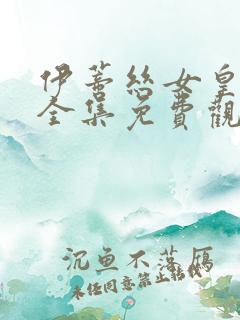 伊蒂丝女皇
全集免費觀
沉魚不落雁
未经同意禁止转载